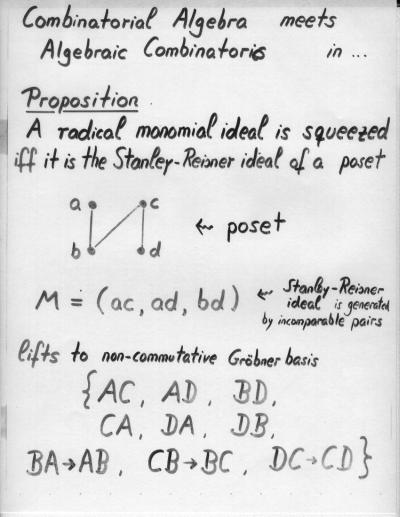 Combinatorial Algebra meets
Algebraic Combinatorics in ...
Proposition
A radical monomial ideal is squeezed
iff it is the Stanley-Reisner ideal of a poset
a c
b d
← poset
M = (ac, ad, bd)
← Stanley-Reisner
ideal is generated
by incomparable pairs
lifts to non-commutative Gröbner basis
{AC, AD, BD,
CA, DA, DB,
BA→AB, CB→BC, DC→CD}